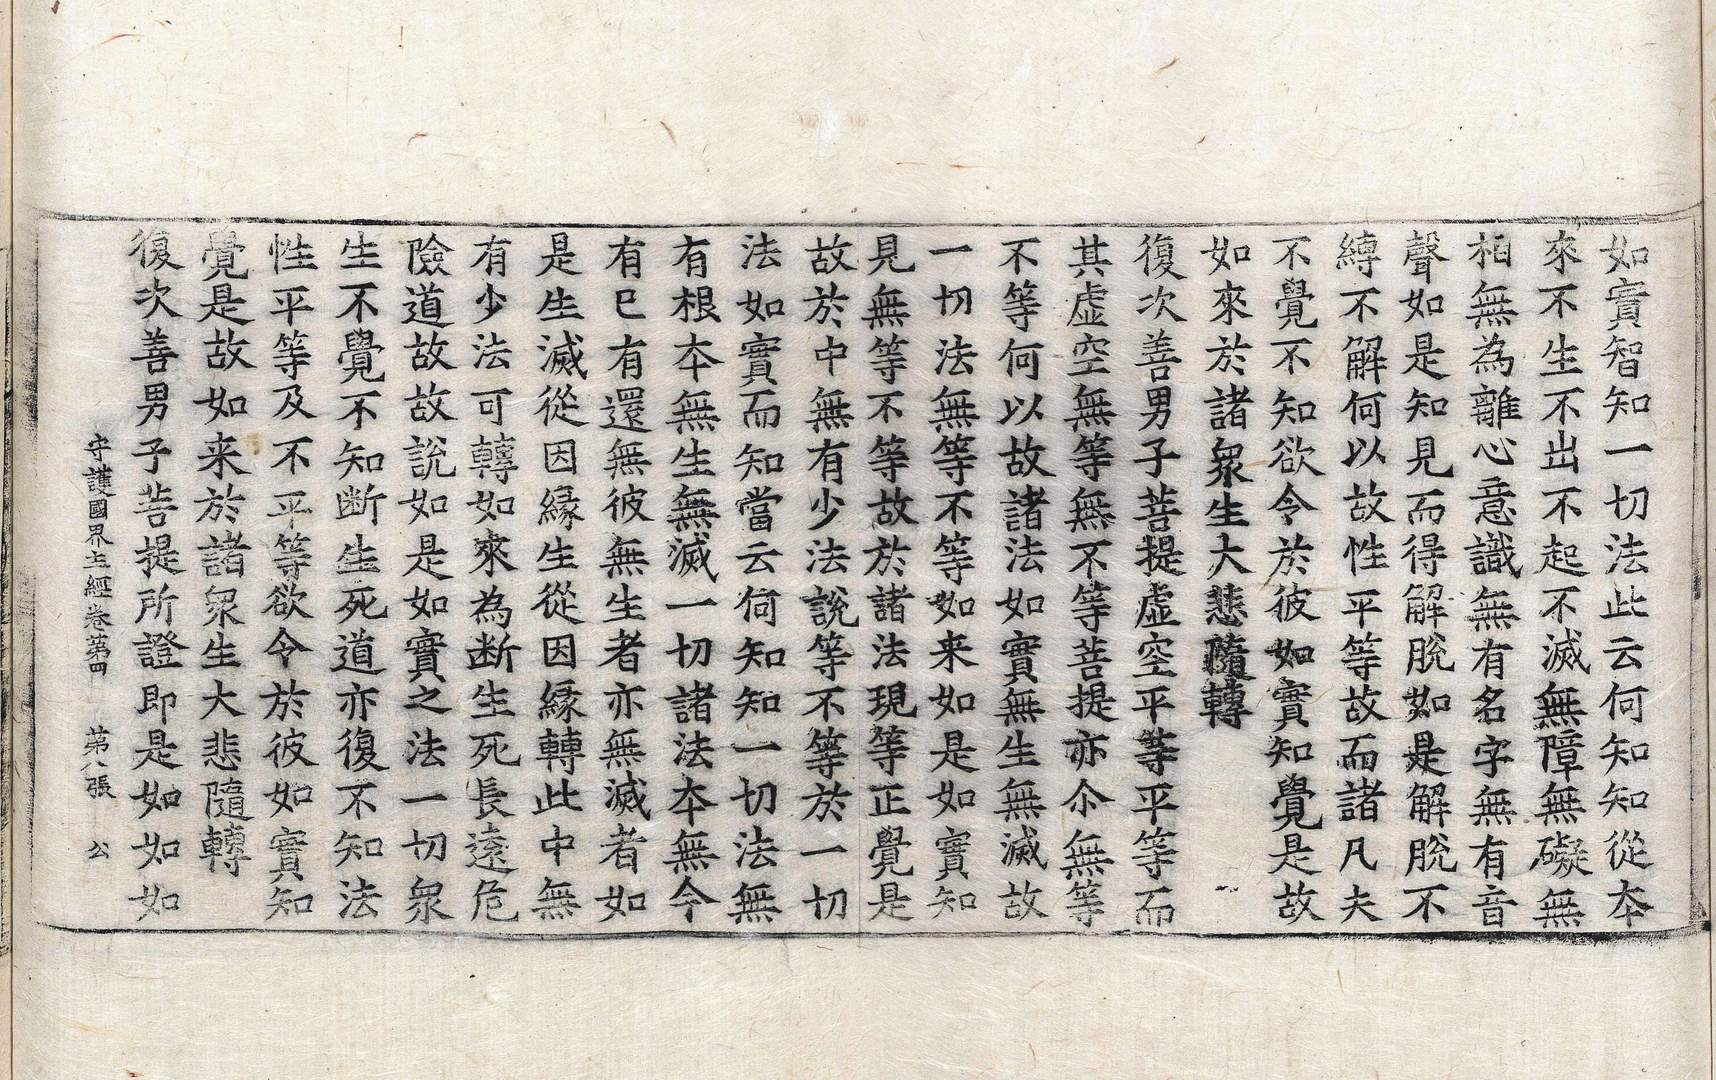 如實智知一切法此云何知知從夲
來不生不出不起不滅無障無礙無
相無為離心意識無有名字無有音
聲如是知見而得解脫如是解脫不
縛不解何以故性平等故而諸凡夫
不覺不知欲令於彼如實知覺是故
如來於諸衆生大悲隨轉
復次善男子菩提虛空平等平等而
其虛空無等無不等菩提亦尒無等
不等何以故諸法如實無生無滅故
一切法無等不等如来如是如實知
見無等不等故於諸法現等正覺是
故於中無有少法說等不等於一切
法如實而知當云何知知一切法無
有根夲無生無滅一切諸法夲無今
有已有還無彼無生者亦無滅者如
是生滅從因緣生從因緣轉此中無
有少法可轉如來為断生死長遠危
險道故故說如是如實之法一切衆
生不覺不知断生死道亦復不知法
性平等及不平等欲令於彼如實知
覺是故如来於諸衆生大悲隨轉
復次善男子菩提所證即是如如如
守護國界主經卷第四　第八張　公